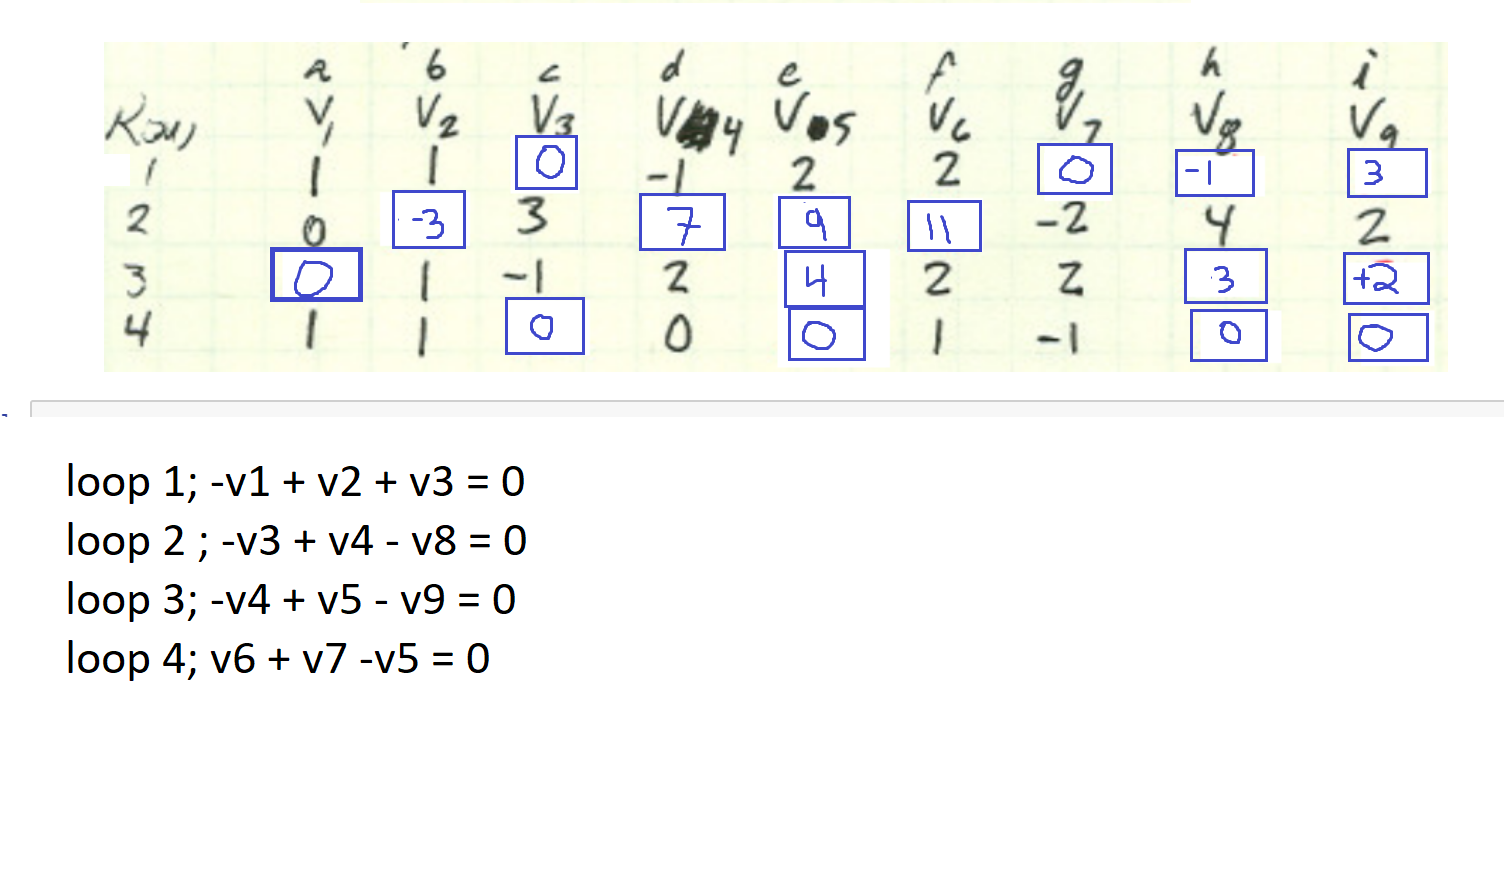 a b c d e f g h i
Row V1 V2 V3 V4 V5 V6 V7 V8 V9
1 1 1 0 -1 2 2 0 -1 3
2 0 -3 3 7 9 11 -2 4 2
3 0 1 -1 2 4 2 2 3 +2
4 1 1 0 0 0 1 -1 0 0
loop 1; -v1 + v2 + v3 = 0
loop 2 ; -v3 + v4 - v8 = 0
loop 3; -v4 + v5 - v9 = 0
loop 4; v6 + v7 -v5 = 0